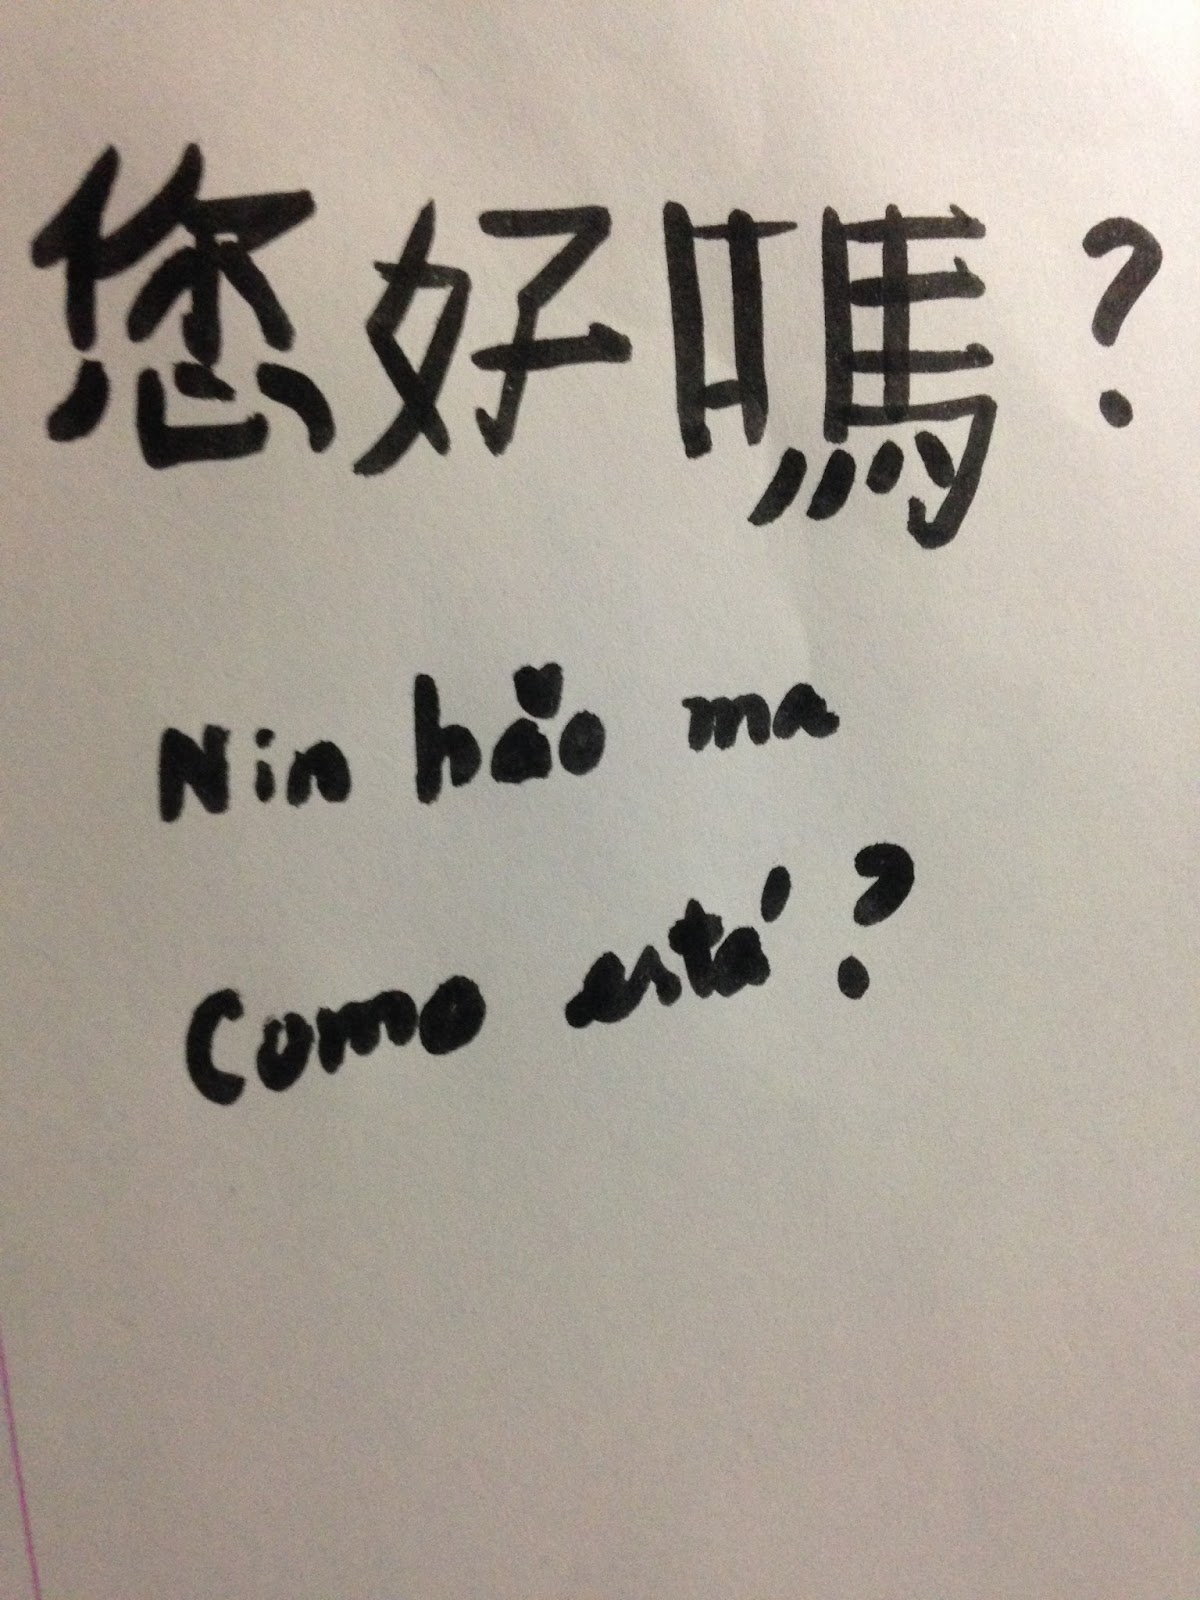 您好嗎?
Nin hǎo ma
Como está?